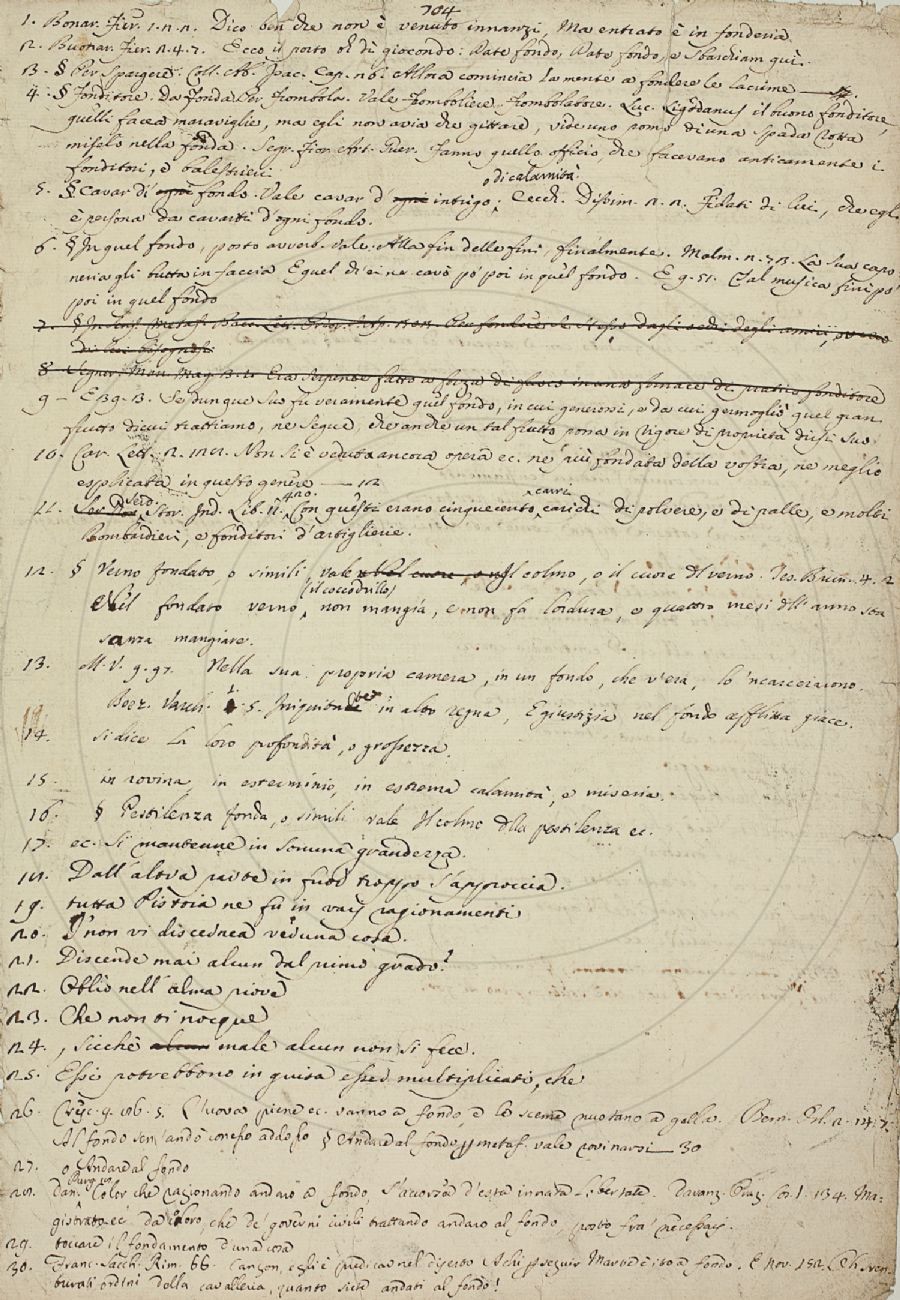 704
1. Bonar. Fier. 1. 2. 2. Dico ben che non è venuto innanzi, Ma entrato è in fonderia.
2. Buonar. Fier. 2. 4. 7. Ecco il porto di giocondo: Date fondo, Date fondo, e sbarchiam qui.
3. § Per Spargere. Coll. Ab. Isac. Cap. Alma comincia la mente a fondere le lacrime
4. § Fonditore. Da Fonda per Frombola. Vale Fromboliere. Frombolatore. Luc. il buono fonditore,
quelli facea maraviglie, ma egli non avia che gittare, vide uno pomo di una spada rotta
miselo nella fonda. Segr. Fior. Art. Guer. Fanno quello officio che facevano anticamente i
fonditori, e balestrieri
o di calamità.
5. § Cavar di ogni fondo. Vale cavar d' ogni intrigo; Cecch. Dissim. 2. 2. Fidati di lui, che egli
è persona da cavarti d'ogni fondo.
6. § In quel fondo, posto avverb. vale. Alla fin delle fini, finalmente. Malm. La sua capo
neria gli butta in faccia E quel di'ei ne cavò po' poi in quel fondo. E 9. 51. Tal musica finì po'
poi in quel fondo
7. § In Metaf. Per fondere dagli degli amici,
di lui bisognosi
8. Segner. Mann. Mag. Era Serpente fatto a forza di fuoco in una fornace di fonditore
9 - E Se dunque Suo fu veramente quel fondo, in cui generossi, e da cui germogliò quel gran
frutto di cui trattiamo, ne segue, che anche un tal frutto possa in vigore di proprietà dirsi suo
10. Car. Lett. 2. Non si è veduta ancora opera ec. nè più fondata della vostra, ne meglio
esplicata in questo genere
Serd. 420. carri
11. Ser Stor. Ind. Lib. 11. Con questi erano cinquecento carichi di polvere, e di palle, e molti
Bombardieri, e fonditori d'artiglierie.
12. § Verno fondato, o simili, vale Il colmo, o il cuore del verno. Tes. Brun. 4. 2
(il coccodrillo)
Nel fondato verno, non mangia, e non fa lordura, e quattro mesi dell'anno sta
sanza mangiare.
13. M. V. 9. 97. Nella sua propria camera, in un fondo, che v'era, lo 'ncarcerarono.
Boez. Varch. 1. 5. Iniquitade in alto regna, E giustizia nel fondo afflitta giace.
14. Si dice La loro profondità, o grossezza.
15. in rovina, in esterminio, in estrema calamità, e miseria.
16. § Pestilenza fonda, o simili vale Il colmo della pestilenza ec.
17. ec. Si mantenne in somma grandezza.
18. Dall'altra parte in fuor troppo s'approccia.
19. tutta Pistoia ne fu in varj ragionamenti
20. I' non vi discernea veruna cosa.
21. Discende mai alcun dal primo grado?
22. Oblio nell'alma piove
23. Che non vi nocque
24. , sicchè alcun male alcun non si fece.
25. Essi potrebbono in guisa esser multiplicati, che
26. Cresc. 9. 86. 5. L'uova piene ec. vanno a fondo, e le sceme nuotano a galla. Bern. Orl. 2. 14. 7.
Al fondo § Andare al fondo metaf. vale rovinarsi 30
27. o Andare al fondo
28. Dan. Purg. 18. Color che ragionando andaro a fondo, S'accorser d'esta innata libertate. Davanz. 134. Ma-
gistrato ec. da coloro, che de' governi civili trattando andaro al fondo, posto fra' necessarj.
29. toccare il fondamento d'una cosa
30. Franc. Sacch. Rim. 66. Canzon, egli è predicar nel diserto A chi seguir Marte è ito a fondo. E Nov. 152. Oh sven-
turati ordini della cavalleria, quanto siete andati al fondo!